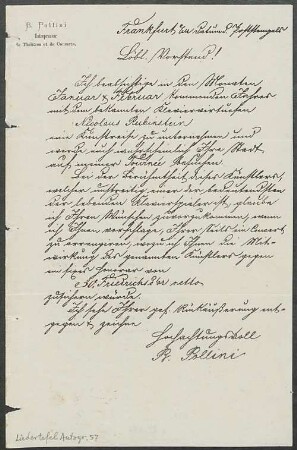 B. Pollini
Impresario
de Théâtres et de Concerts.
Frankfurt, im Datum d. Poststempels
Löbl. Vorstand!
Ich beabsichtige in den Monaten
Januar & Februar kommenden Jahres
mit dem bekannten Claviervirtuosen
Nicolaus Rubinstein
eine Kunstreise zu unternehmen und
werde auch möglicherweise Ihre Stadt
auf meiner Tournée berühren.
Bei der Berühmtheit dieses Künstlers,
welcher unstreitig einer der bedeutendsten
der lebenden Clavierspieler ist, glaube
ich Ihren Wünschen zuvorzukommen, wenn
ich Ihnen vorschlage, Ihrerseits ein Concert
zu arrangiren, wozu ich Ihnen die Mit-
wirkung des genannten Künstlers gegen
ein fixes Honorar von
Friedrichsd'or netto
zusichern würde.
Ich sehe Ihrer gef. Rückäußerung ent-
gegen & zeichne
Hochachtungsvoll
B. Pollini
Liedertafel Autogr. 57